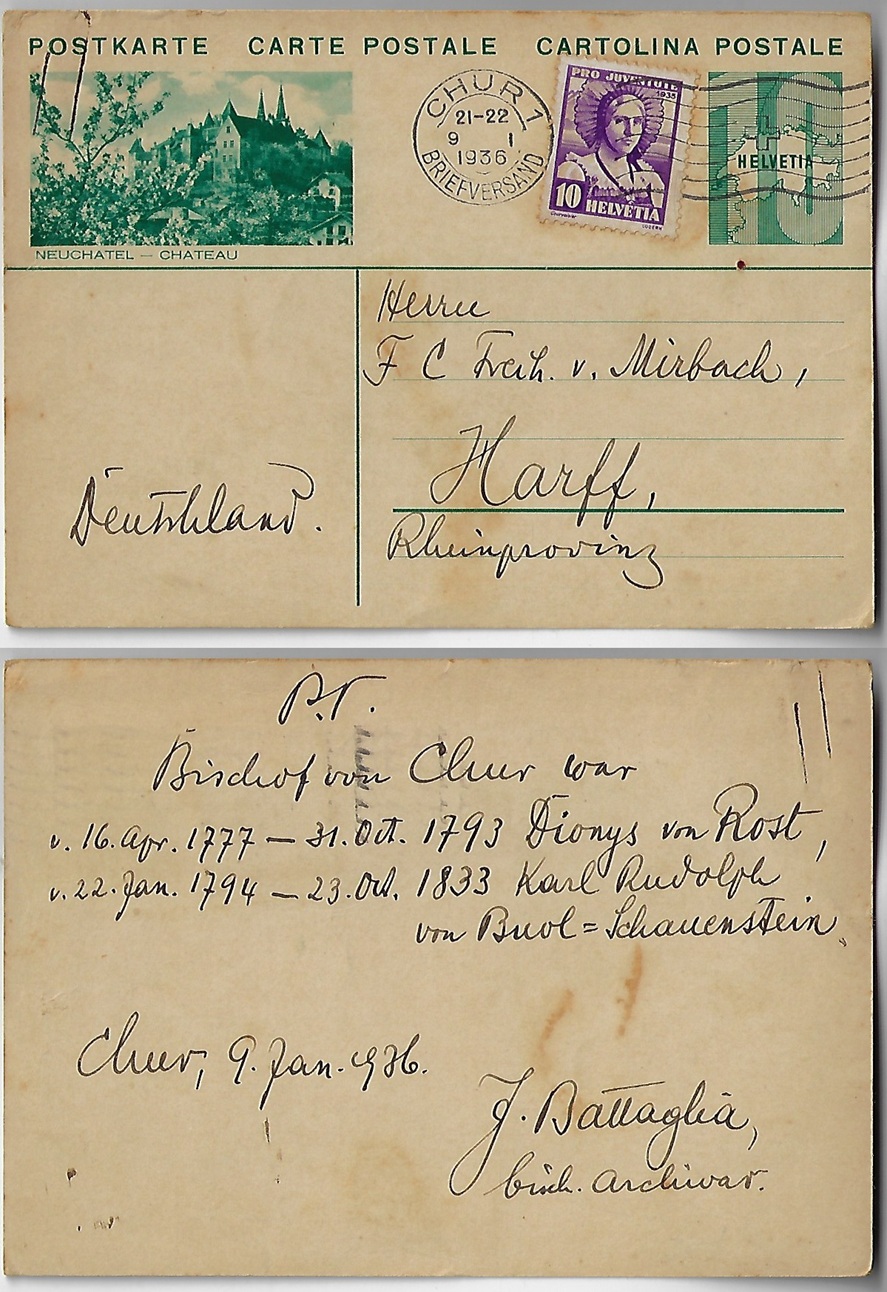 POSTKARTE CARTE POSTALE CARTOLINA POSTALE
NEUCHATEL — CHATEAU
CHUR 1
21-22
9 I
1936
BRIEFVERSAND
PRO JUVENTUTE
1935
10 HELVETIA
HELVETIA
10
Herrn
F C Freih. v. Mirbach,
Harff,
Rheinprovinz
Deutschland.
P.T.
Bischof von Chur war
v. 16. Apr. 1777 — 31. Oct. 1793 Dionys von Rost,
v. 22. Jan. 1794 — 23. Oct. 1833 Karl Rudolph
von Buol=Schauenstein.
Chur, 9. Jan. 1936.
J. Battaglia,
bisch. Archivar.